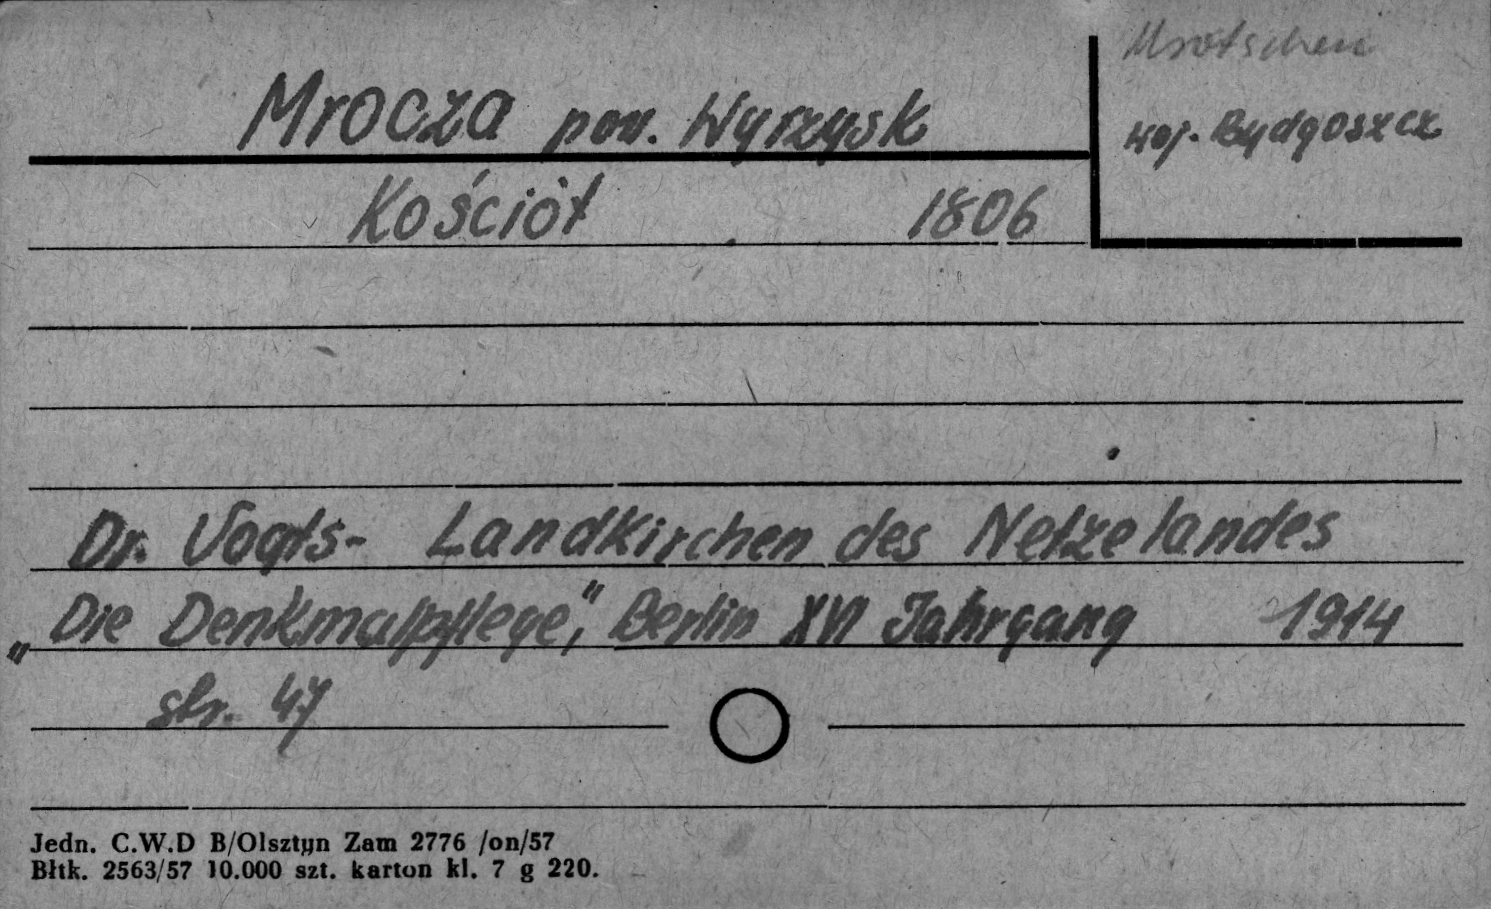 Mrotschen
Mrocza pow. Wyrzysk
woj. Bydgoszcz
Kościół 1806
Dr. Vogts- Landkirchen des Netzelandes
„Die Denkmalpflege," Berlin XVI Jahrgang 1914
str. 47
Jedn. C.W.D B/Olsztyn Zam 2776 /on/57
Błtk. 2563/57 10.000 szt. karton kl. 7 g 220.